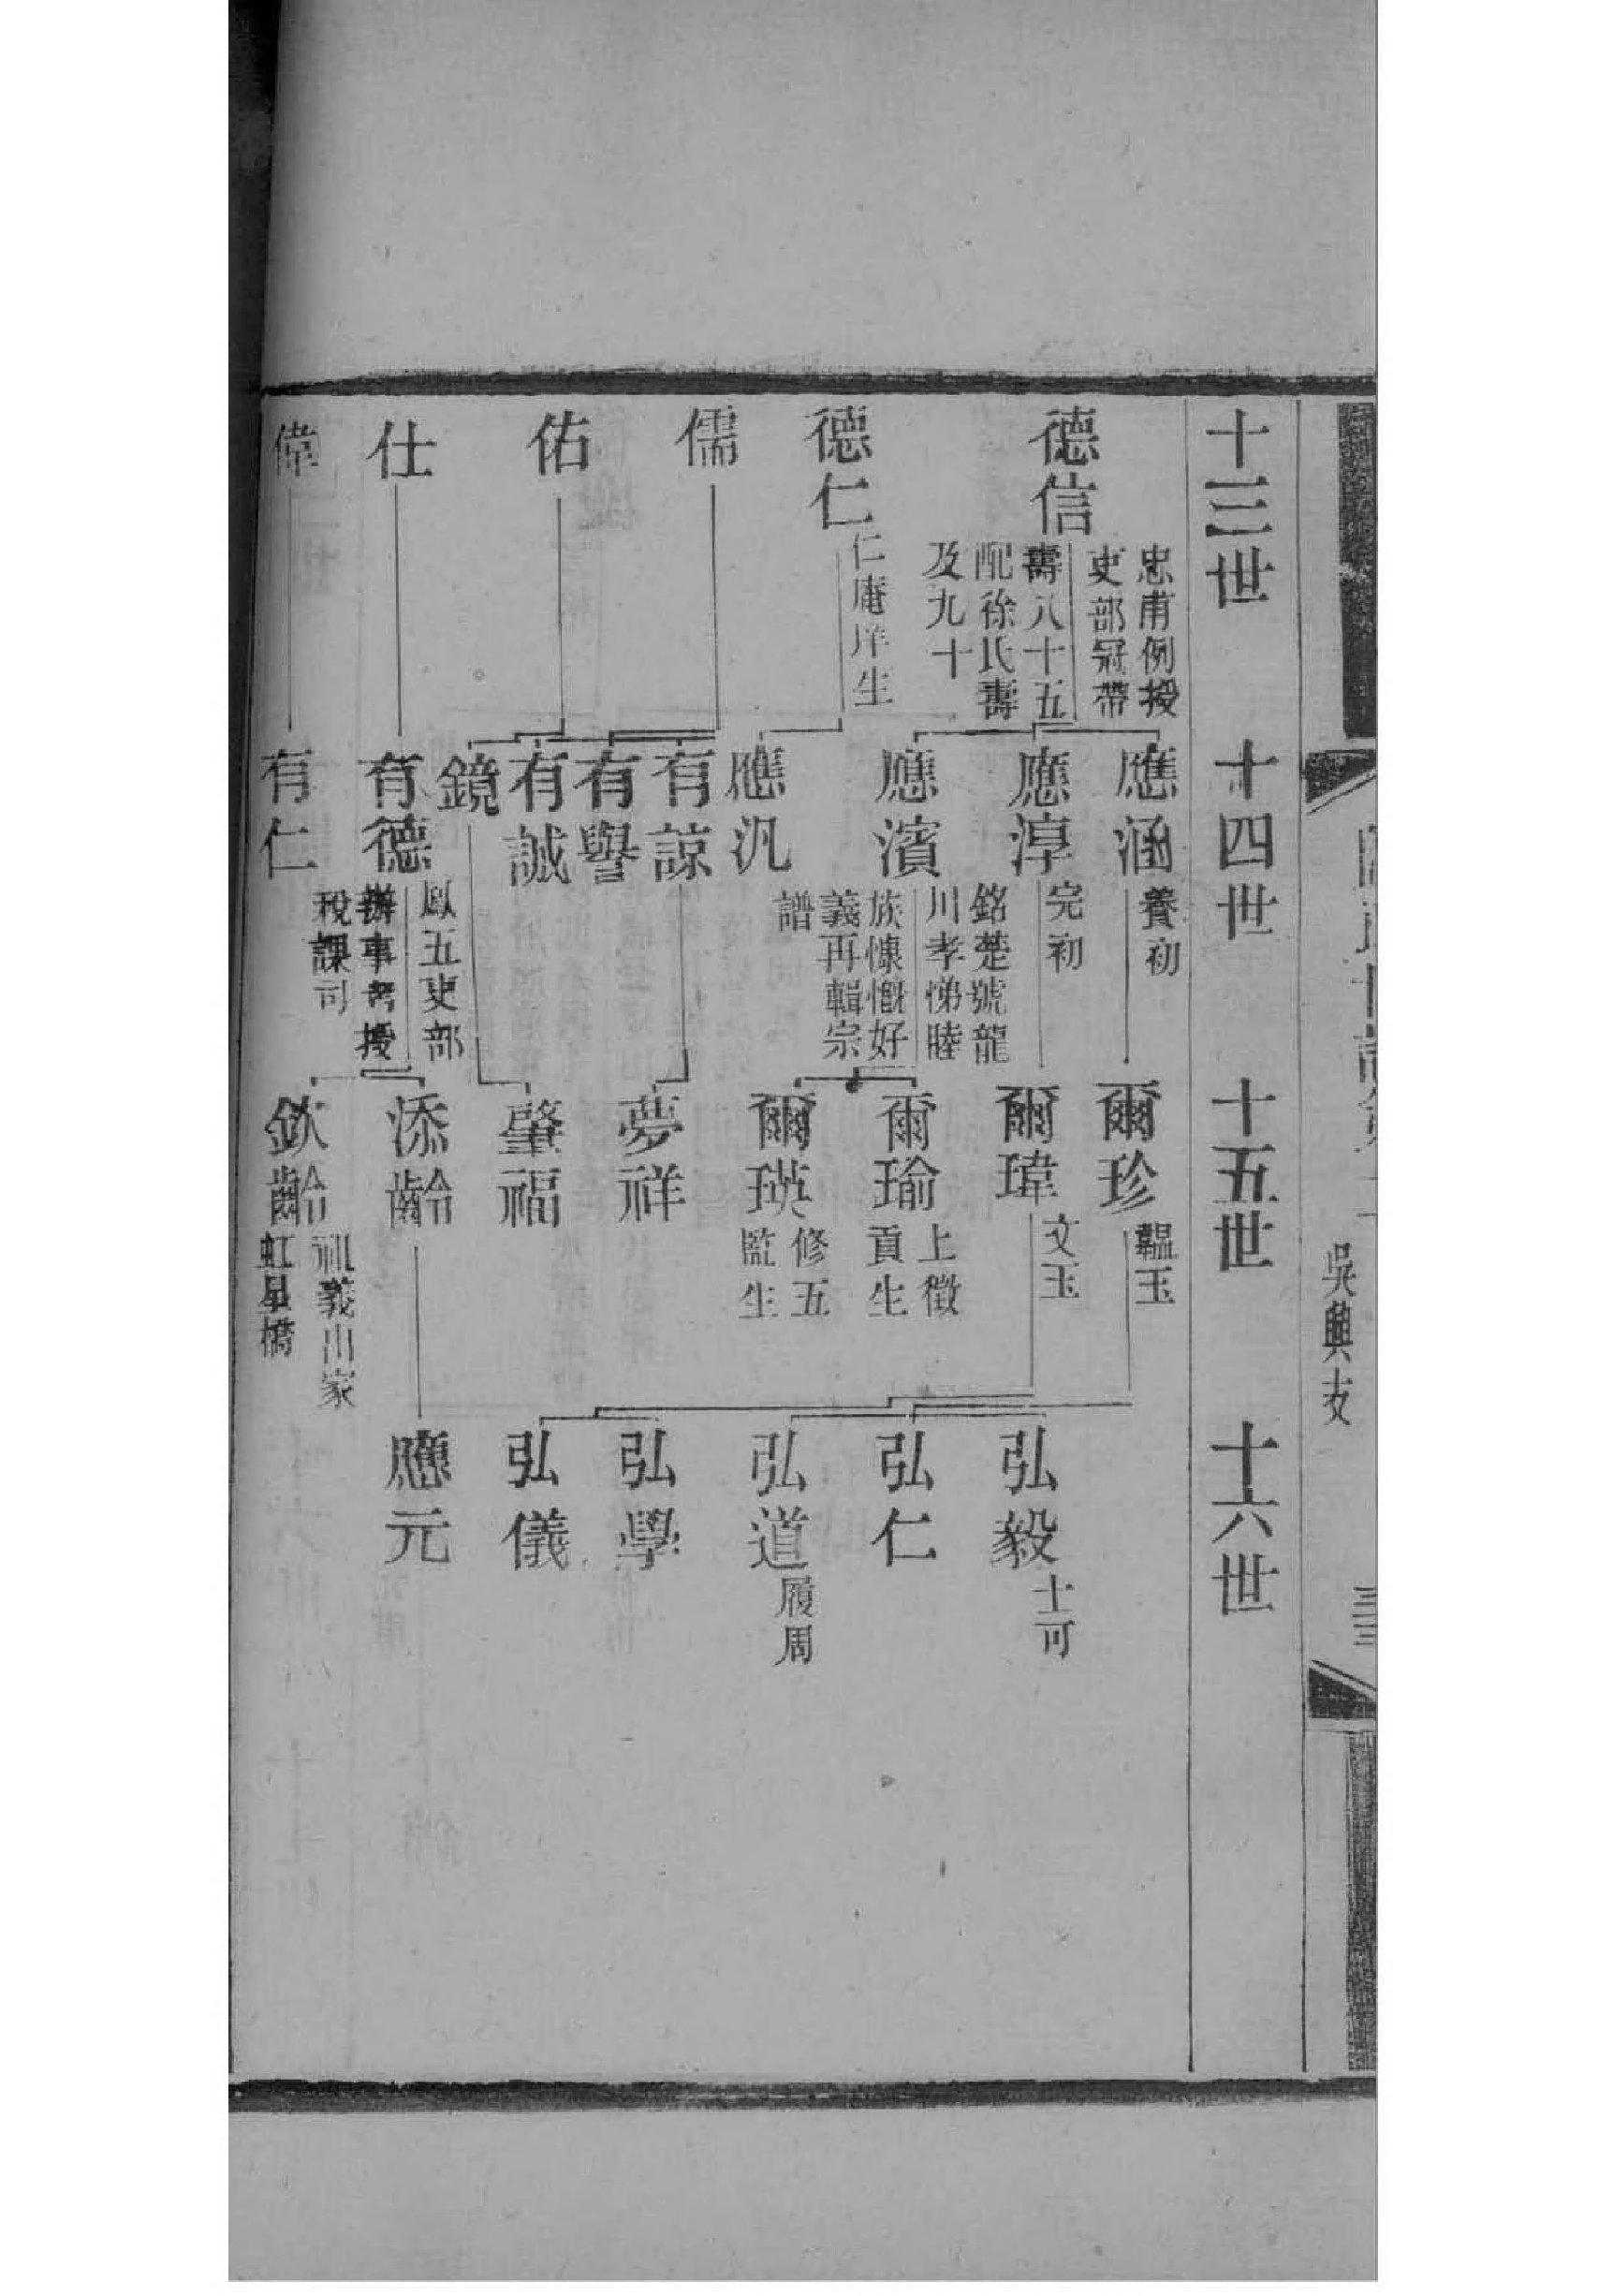 吳興支
三三
十三世
德信
忠甫例授
吏部冠帶
壽八十五
配徐氏壽
及九十
德仁
仁庵庠生
儒
佑
仕
偉
十四世
應涵
養初
應淳
完初
應濱
銘楚號龍
川孝悌睦
族慷慨好
義再輯宗
譜
應汎
有諒
有譽
有誠
鏡
有德
鳳五吏部
辦事考授
稅課司
有仁
十五世
爾珍
韞玉
爾瑋
文玉
爾瑜
上徵
貢生
爾瑛
修五
監生
夢祥
肇福
添齡
欽齡
祖義出家
虹星橋
十六世
弘毅
士可
弘仁
弘道
履周
弘學
弘儀
應元